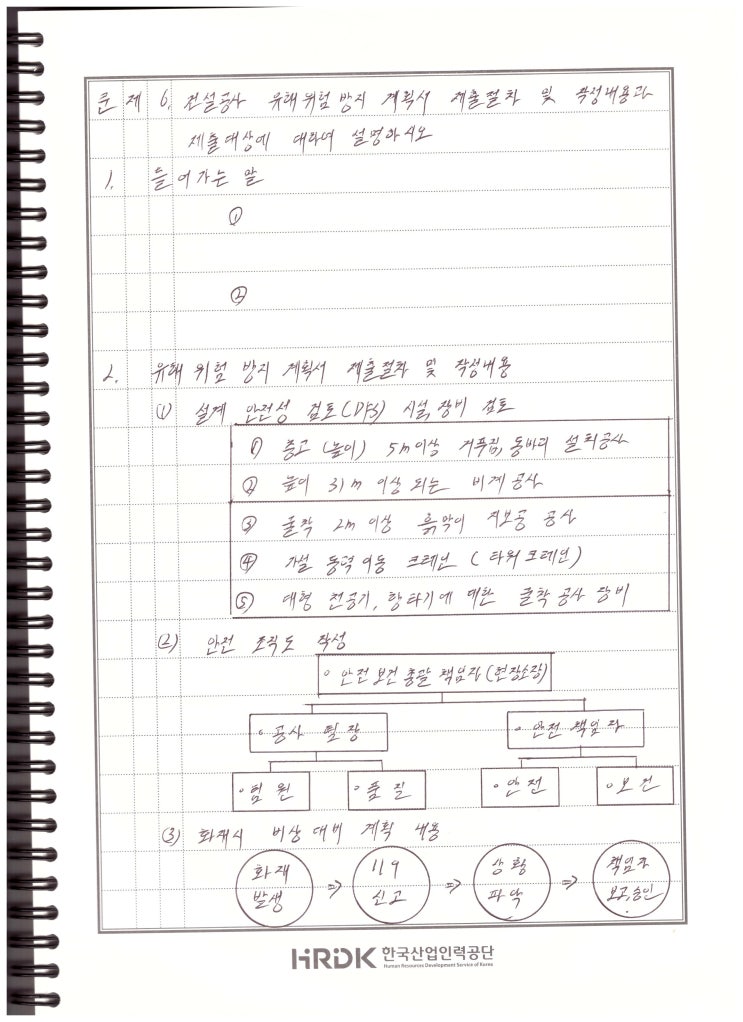 문제 6. 건설공사 유해위험방지 계획서 제출절차 및 작성내용과
제출대상에 대하여 설명하시오
1. 들어가는 말
①
②
2. 유해위험 방지 계획서 제출절차 및 작성내용
(1) 설계 안전성 검토(DFS) 시설,장비 검토
① 층고 (높이) 5m이상 거푸집,동바리 설치공사
② 높이 31m 이상 되는 비계공사
③ 굴착 2m 이상 흙막이 지보공 공사
④ 가설 동력이동 크레인 (타워크레인)
⑤ 대형 천공기, 항타기에 대한 굴착공사 장비
(2) 안전 조직도 작성
• 안전보건총괄책임자(현장소장)
• 공사 팀장 • 안전책임자
• 팀원 • 품질 • 안전 • 보건
(3) 화재시 비상대비 계획 내용
화재 발생 ⇒ 119 신고 ⇒ 상황 파악 ⇒ 책임자 보고,승인
HRDK 한국산업인력공단
Human Resources Development Service of Korea